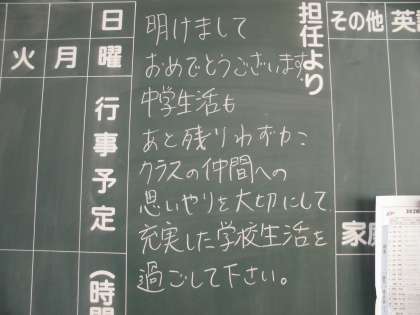 その他 英
担任より
明けまして
おめでとうございます。
中学生活も
あと残りわずか
クラスの仲間への
思いやりを大切にして
充実した学校生活を
過ごして下さい。
日曜
行事予定
（時間
月
火
家庭